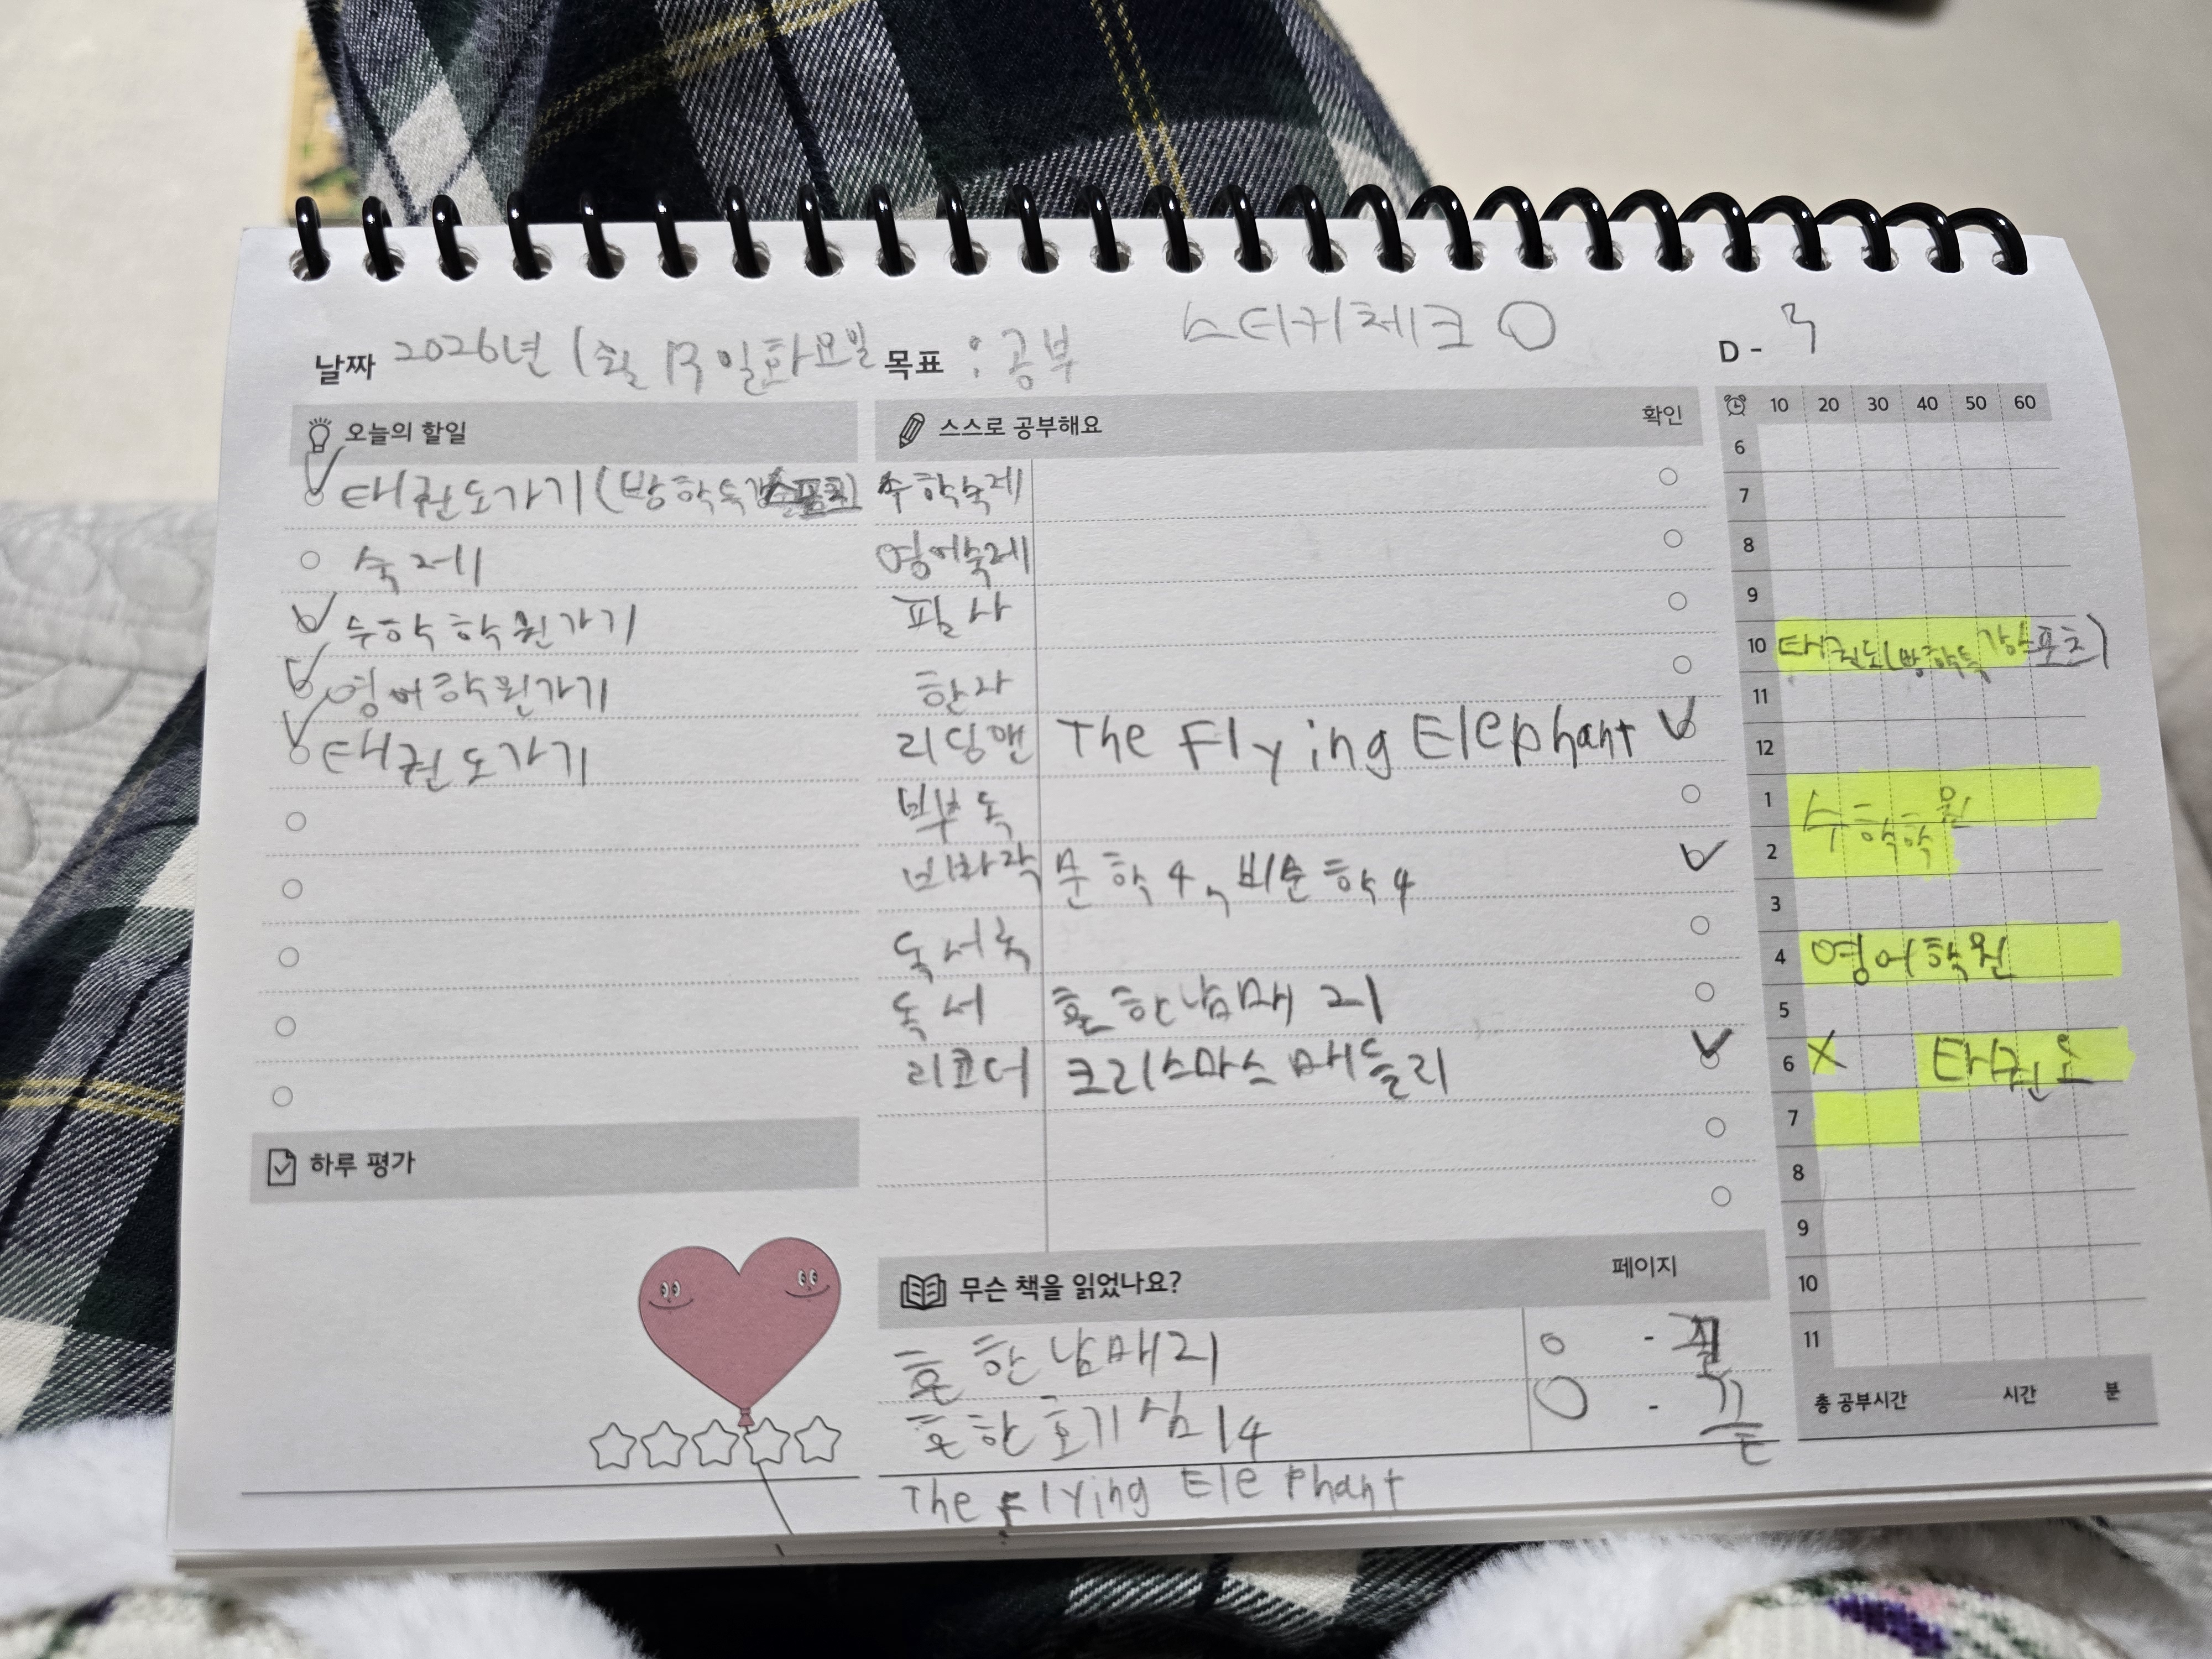 스티커체크 ○
날짜 2026년 1월 13일화요일 목표 : 공부 D-
오늘의 할일
태권도가기(방학특강스포츠)
숙제
수학학원가기
영어학원가기
태권도가기
하루 평가
스스로 공부해요 확인
수학숙제
영어숙제
필사
한자
리딩앤 The Flying Elephant
뿌독
비파작 문학4, 비문학4
독서록
독서 흔한남매 21
리코더 크리스마스 메들리
무슨 책을 읽었나요? 페이지
흔한남매21 0 - 끝
흔한호기심14 0 - 끝
The Flying Elephant
10 20 30 40 50 60
6
7
8
9
10 태권도(방학특강스포츠)
11
12
1 수학학원
2
3
4 영어학원
5
6 X 태권도
7
8
9
10
11
총 공부시간 시간 분